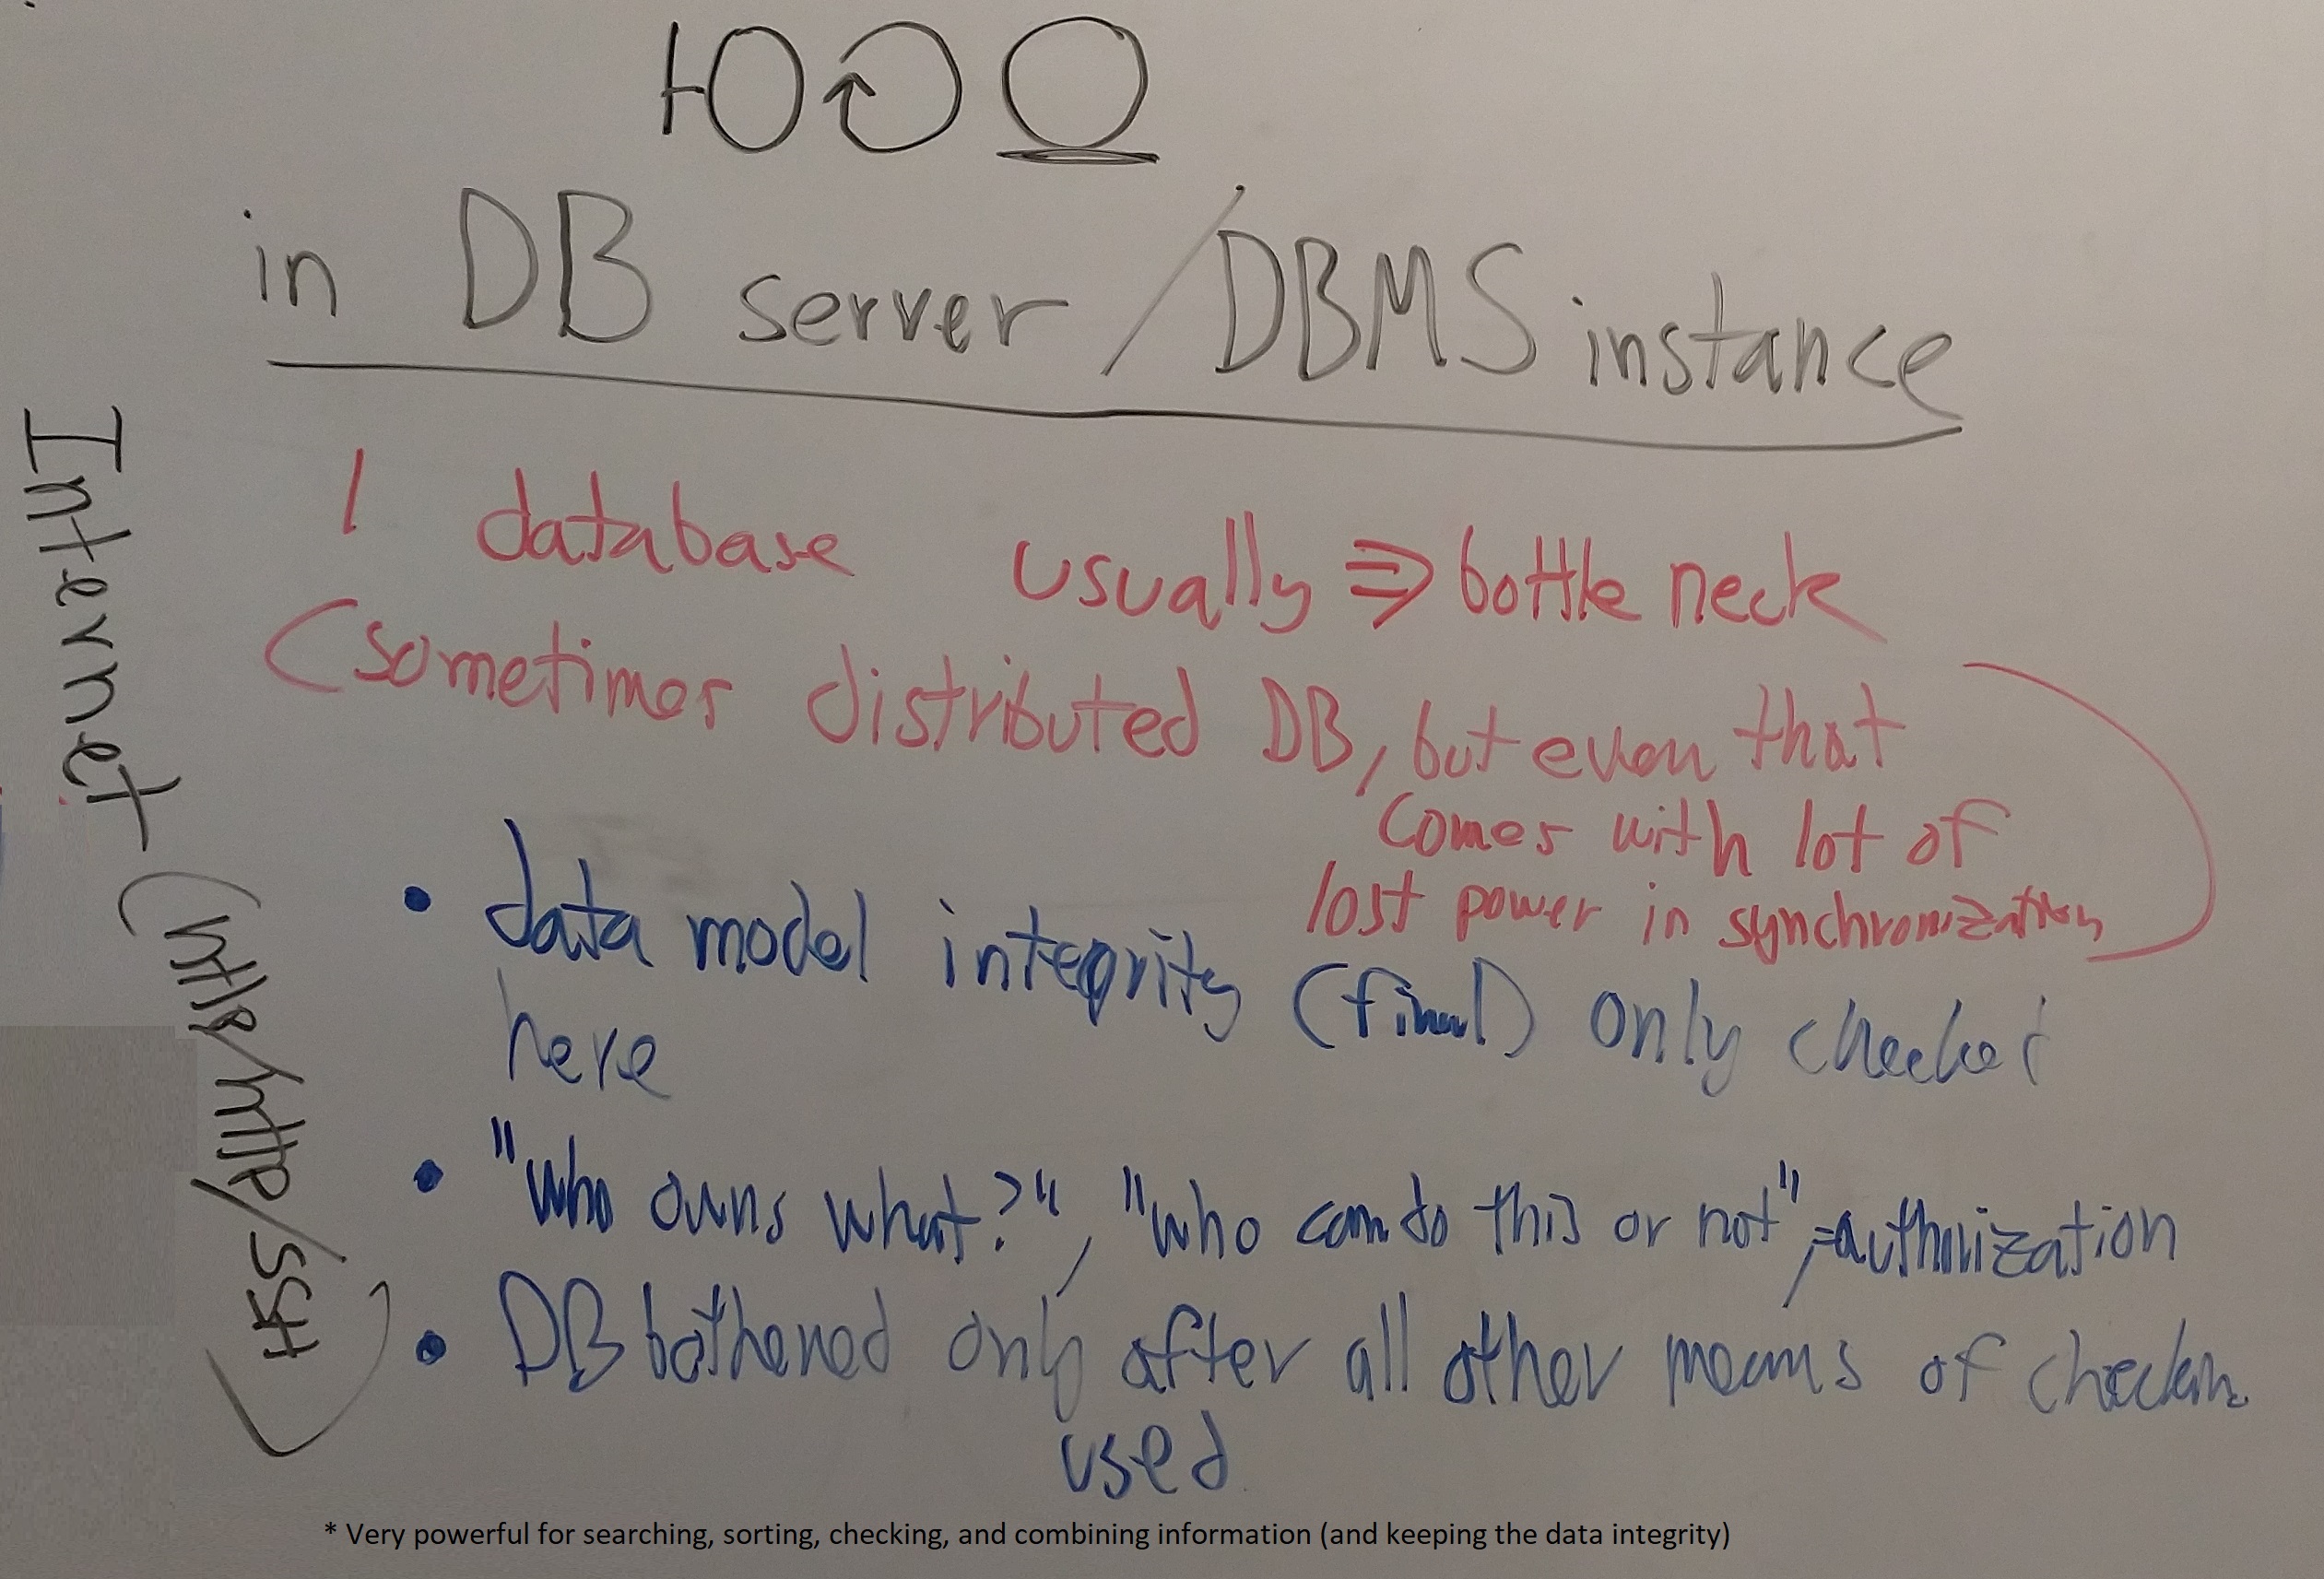 in DB server / DBMS instance
1 database usually ⇒ bottle neck
(sometimes distributed DB, but even that
comes with lot of
lost power in synchronization)
• data model integrity (final) only checked
here
• "who owns what?", "who can do this or not", =authorization
• DB bothered only after all other means of checkin
used
Internet (http/http/SSH)
* Very powerful for searching, sorting, checking, and combining information (and keeping the data integrity)